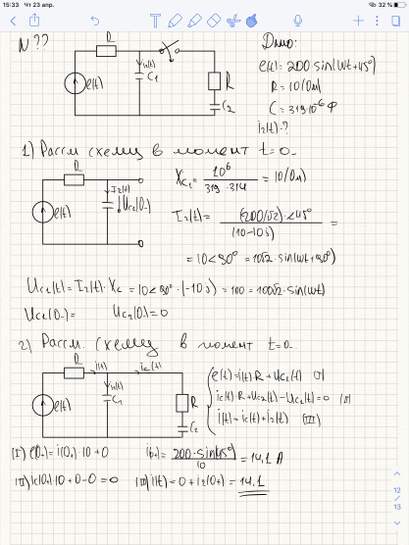 15:33 Чт 23 апр.
32 %
N ??
Дано:
R
e(t)
C₁
R
C₂
e(t) = 200 sin(ωt+45°)
R = 10 (Ом)
C = 319·10⁻⁶ Ф
i₂(t) - ?
1) Рассм схему в момент t=0₋
R
e(t)
I₂(t)
Xc₁ = 10⁶ / 319 · 314 = 10 (Ом)
I₂(t) = (200/√2) ∠45° / (10-10j) =
= 10∠90° = 10√2 · sin(ωt+90°)
Uc₁(t) = I₂(t) · Xc = 10∠90° · (-10j) = 100 = 100√2 · sin(ωt)
Uc₂(0₋) = 0
2) Рассм. схему в момент t=0₋
R
i(t)
e(t)
C₁
R
C₂
e(t) = i(t)·R + Uc₂(t) (I)
ic(t)·R + Uc₂(t) - Uc₁(t) = 0 (II)
i(t) = ic(t) + i₂(t) (III)
(I) e(0₊) = i(0₊)·10 + 0
i(0₊) = 200 · sin(45°) / 10 = 14,1 А
(II) ic(0₊)·10 + 0 - 0 = 0
(III) i(t) = 0 + i₂(0₊) = 14,1
12
13